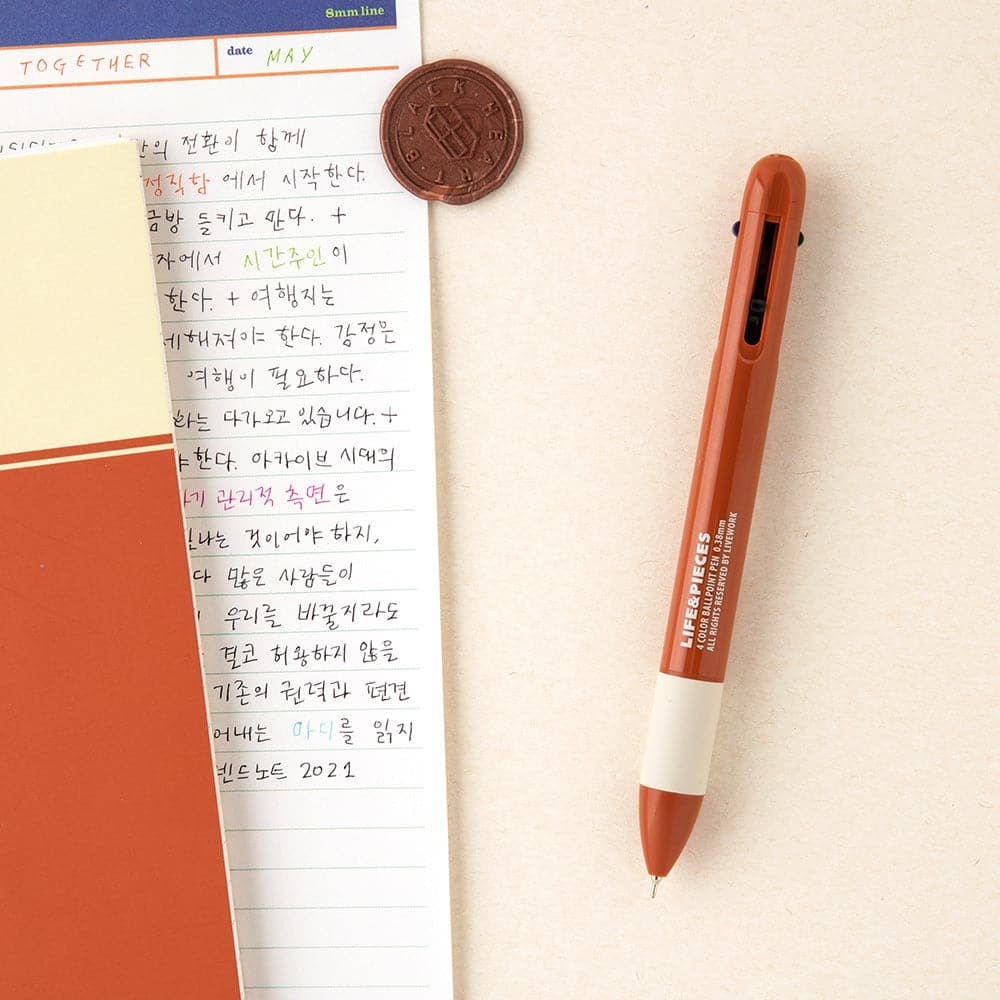 8mm line
TOGETHER
date MAY
전환이 함께
정직함에서 시작한다.
금방 들키고 만다. +
자에서 시간주인이
한다. + 여행지는
세해져야 한다. 감정은
여행이 필요하다.
하는 다가오고 있습니다. +
야한다. 아카이브 시대의
자기 관리적 측면은
것이어야 하지,
다 많은 사람들이
우리를 바꿀지라도
결코 허황하지 않을
기존의 권력과 편견
어내는 마디를 읽지
빈드노트 2021
BLACK HEART
LIFE&PIECES
4 COLOR BALLPOINT PEN 0.38mm
ALL RIGHTS RESERVED BY LIVEWORK